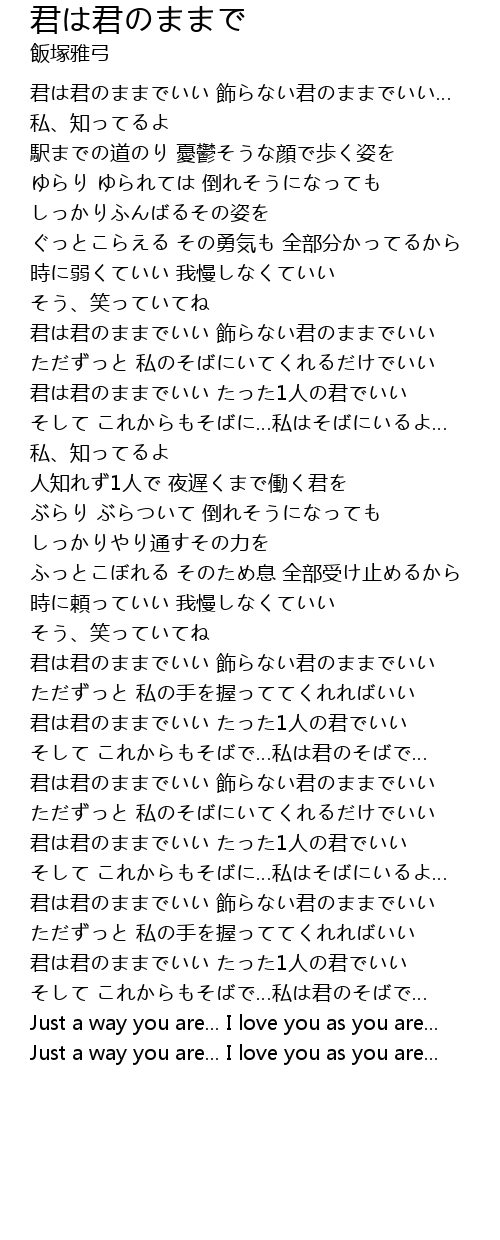 君は君のままで
飯塚雅弓
君は君のままでいい 飾らない君のままでいい...
私、知ってるよ
駅までの道のり 憂鬱そうな顔で歩く姿を
ゆらり ゆられては 倒れそうになっても
しっかりふんばるその姿を
ぐっとこらえる その勇気も 全部分かってるから
時に弱くていい 我慢しなくていい
そう、笑っていてね
君は君のままでいい 飾らない君のままでいい
ただずっと 私のそばにいてくれるだけでいい
君は君のままでいい たった1人の君でいい
そして これからもそばに...私はそばにいるよ...
私、知ってるよ
人知れず1人で 夜遅くまで働く君を
ぶらり ぶらついて 倒れそうになっても
しっかりやり通すその力を
ふっとこぼれる そのため息 全部受け止めるから
時に頼っていい 我慢しなくていい
そう、笑っていてね
君は君のままでいい 飾らない君のままでいい
ただずっと 私の手を握っててくれればいい
君は君のままでいい たった1人の君でいい
そして これからもそばで...私は君のそばで...
君は君のままでいい 飾らない君のままでいい
ただずっと 私のそばにいてくれるだけでいい
君は君のままでいい たった1人の君でいい
そして これからもそばに...私はそばにいるよ...
君は君のままでいい 飾らない君のままでいい
ただずっと 私の手を握っててくれればいい
君は君のままでいい たった1人の君でいい
そして これからもそばで...私は君のそばで...
Just a way you are... I love you as you are...
Just a way you are... I love you as you are...